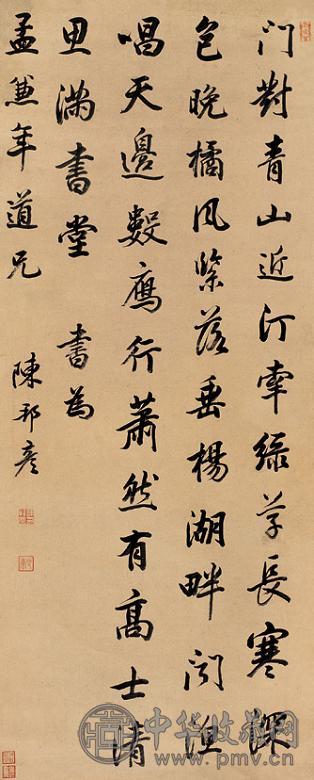 門對青山近汀牽綠草長寒深
包晚橘風緊落垂楊湖畔聞漁
唱天邊數鴈行蕭然有高士清
思滿書堂 書為
孟年道兄
陳邦彥
中华收藏网
www.pmv.cn